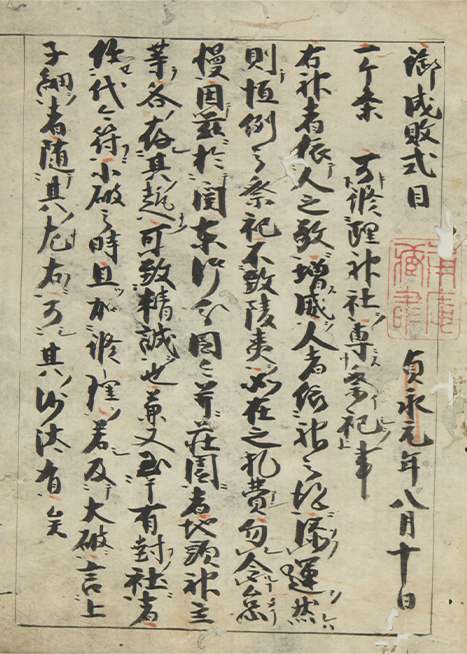 御成敗式目　貞永元年八月十日
一ケ条　可修理神社専祭祀事
右神者依人之敬増威人者依神之徳添運然
則恒例之祭祀不致陵夷如在之礼費勿令怠
慢因茲於関東御分国々并荘園者地頭神主
等各存其趣可致精誠也兼又至于有封社者
任代々符小破之時且加修理若及大破言上
子細者随其左右可其沙汰有矣